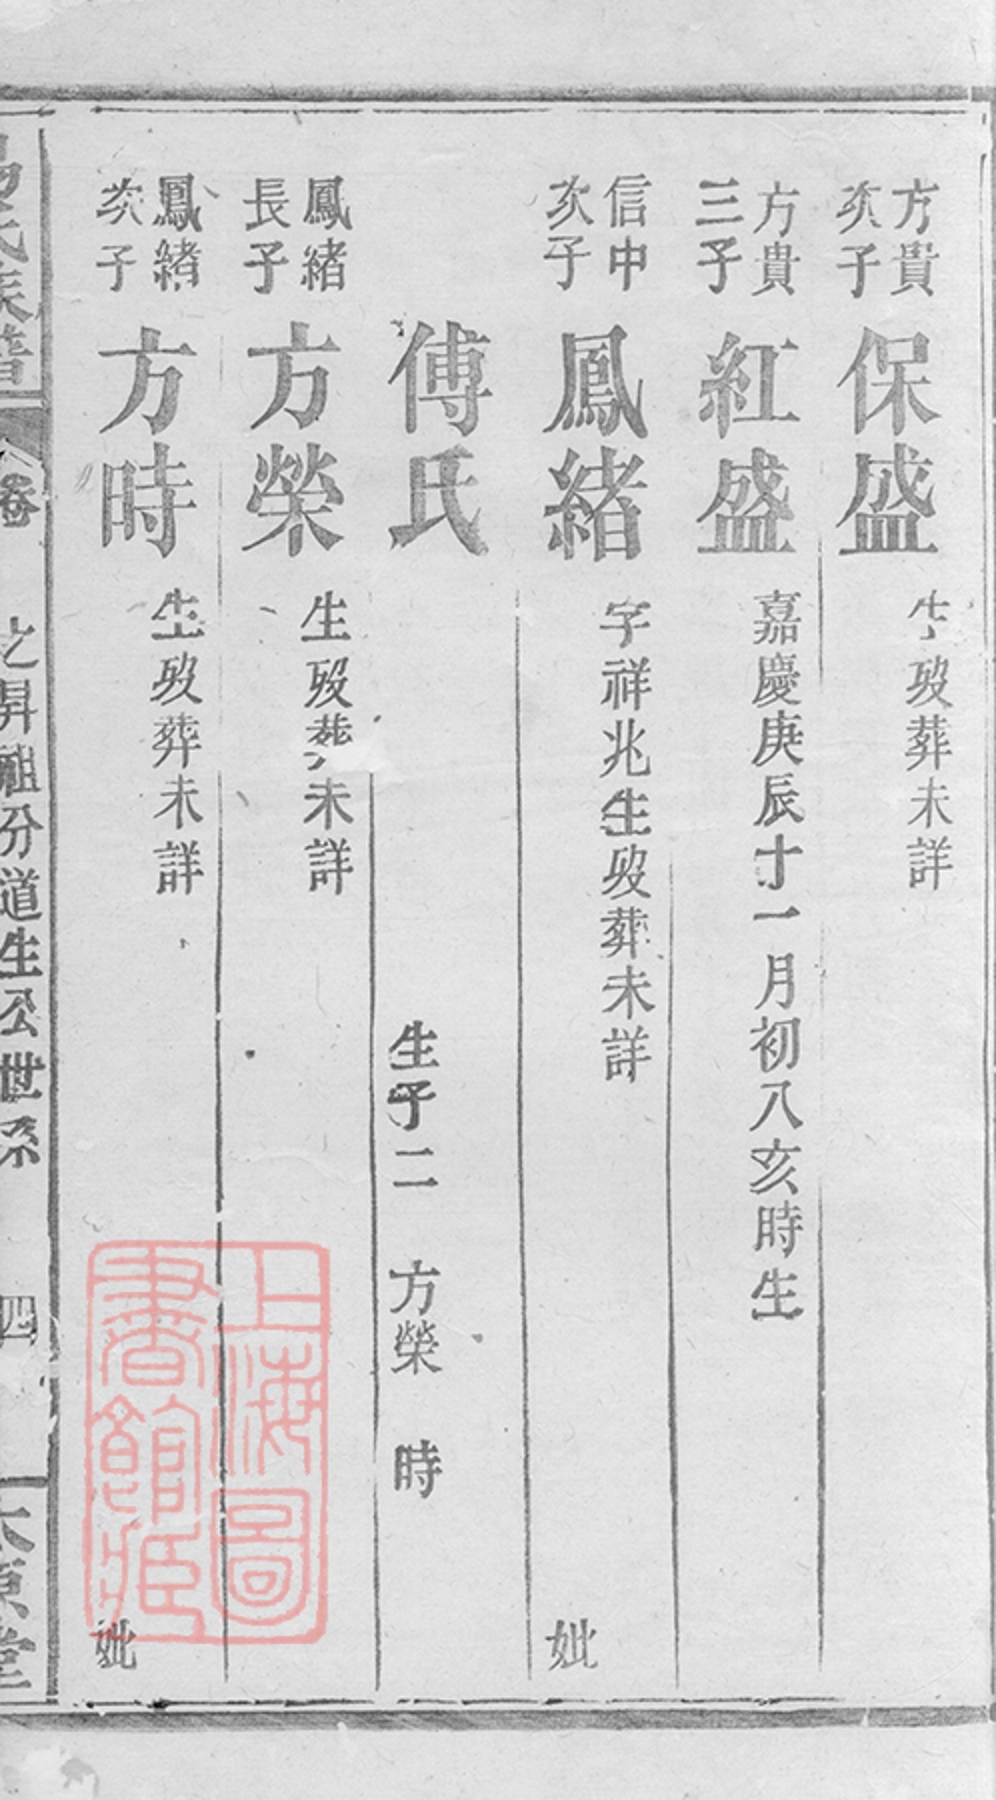 方貴
次子
保盛
生歿葬未詳
方貴
三子
紅盛
嘉慶庚辰十一月初八亥時生
信中
次子
鳳緒
字祥兆生歿葬未詳
妣
傅氏
生子二 方榮 時
鳳緒
長子
方榮
生歿葬未詳
鳳緒
次子
方時
生歿葬未詳
妣
氏族譜 卷 之昇祖分道生公世系 四 太原堂
上海圖
書館藏